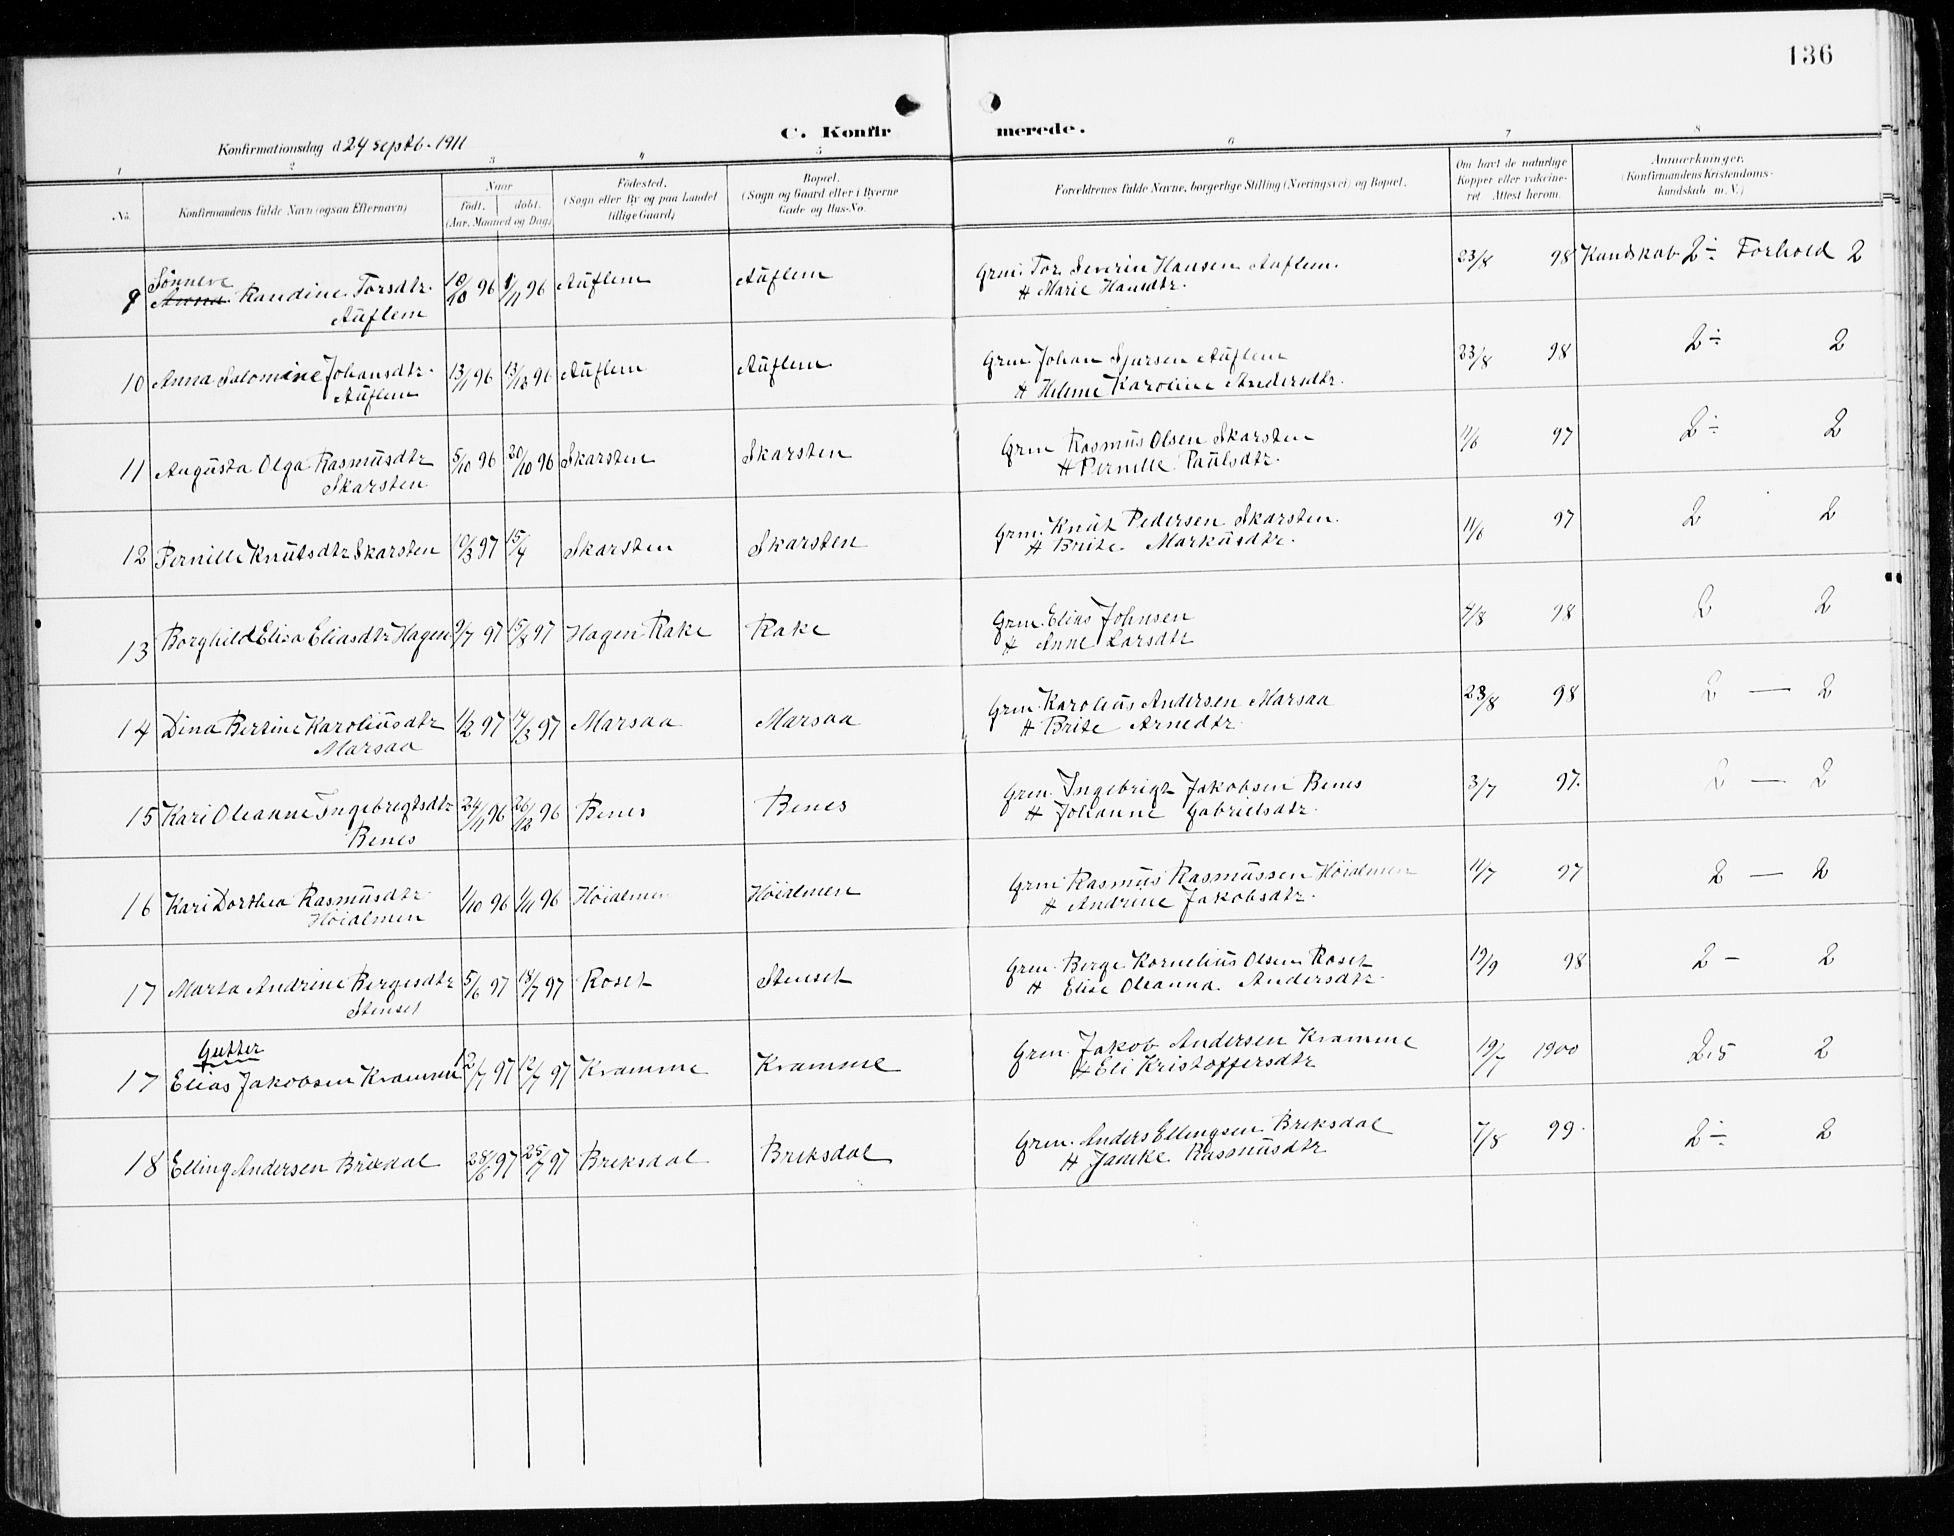 136
C. Konfirmerede.
Konfirmationsdag d 24 septb. 1911
1 2 3 4 5 6 7 8
No.
Konfirmandens fulde Navn (ogsaa Efternavn)
Naar
født. døbt.
(Aar, Maaned og Dag)
Fødested.
(Sogn eller By og paa Landet
tillige Gaard)
Bopæl.
(Sogn og Gaard eller i Byerne
Gade og Hus-No.
Forældrenes fulde Navne, borgerlige Stilling (Næringsvei) og Bopæl.
Om havt de naturlige
Kopper eller vakcine-
ret Attest herom.
Anmærkninger.
(Konfirmandens Kristendoms-
kundskab m. V.)
Sönneve
9 Anna Randine Torsdtr. 10/10 96 1/11 96 Auflem Auflem Grm. Tor Severin Hansen Auflem. 23/8 98 Kundskab 2÷ Forhold 2
Auflem H Marie Hansdtr.
10 Anna Salomine Johansdtr. 13/11 96 13/12 96 Auflem Auflem Grm. Johan Sjursen Auflem 23/8 98 2÷ 2
Auflem H Helene Karoline Andersdtr.
11 Augusta Olga Rasmusdtr 5/10 96 20/10 96 Skarsten Skarsten Grm Rasmus Olsen Skarsten 11/6 97 2÷ 2
Skarsten H Pernille Paulsdtr.
12 Pernille Knutsdtr Skarsten 10/3 97 15/4 Skarsten Skarsten Grm. Knut Pedersen Skarsten. 11/6 97 2 2
H Brite Markusdtr.
13 Borghild Elisa Eliasdtr Hagen 9/7 97 15/8 97 Hagen Rake Rake Grm. Elias Johnsen 4/8 98 2 2
H Anne Larsdtr
14 Dina Bertine Karoliusdtr 1/2 97 17/3 97 Marsaa Marsaa Grm. Karolius Andersen Marsaa 23/8 98 2 — 2
Marsaa H Brite Arnedtr.
15 Kari Oleanne Ingebregtsdtr 24/11 96 26/12 96 Benes Benes Grm. Ingebrigt Jakobsen Benes 3/7 97. 2 — 2
Benes H Johanne Gabrielsdtr.
16 Kari Dorthea Rasmusdtr 1/10 96 1/11 96 Höialmen Höialmen Grm Rasmus Rasmussen Höialmen 11/7 97 2 — 2
Höialmen H Andrine Jakobsdtr.
17 Marta Andrine Bergesdtr 5/6 97 18/7 97 Roset Stenset Grm. Berge Kornelius Olsen Roset 19/9 98 2 – 2
Stenset H Elise Oleanna Andersdtr.
Gutter
17 Elias Jakobsen Kramme 12/7 97 12/7 97 Kramme Kramme Grm. Jakob Andersen Kramme 19/7 1900 2,5 2
H Eli Kristoffersdtr
18 Elling Andersen Brixdal 28/6 97 25/7 97 Breksdal Breksdal Grm. Anders Ellingsen Breksdal 7/8 99. 2÷ 2
H Jamke Rasmusdtr